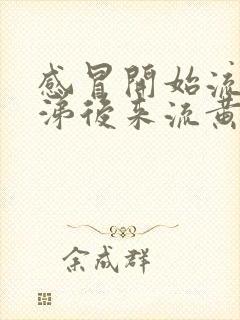 感冒開始流
涕後来流黄
余成群